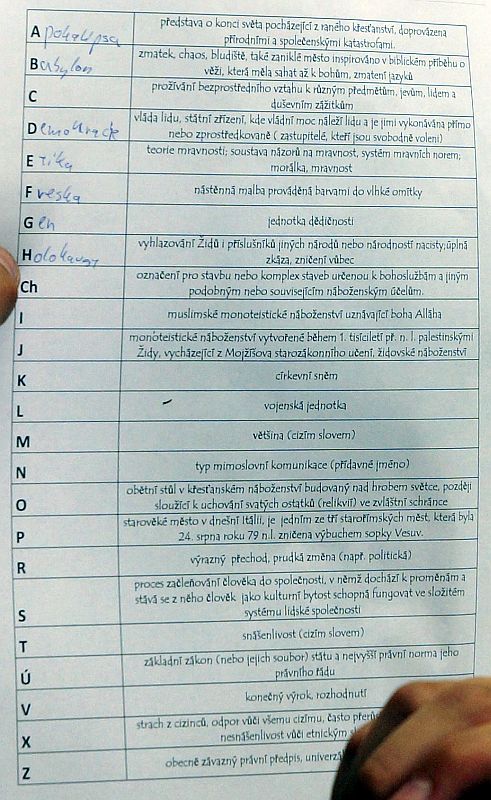 Apokalypsa představa o konci světa pocházející z raného křesťanství, doprovázena
přírodními a společenskými katastrofami.
Babylon zmatek, chaos, bludiště, také zaniklé město inspirováno v biblickém příběhu o
věži, která měla sahat až k bohům, zmatení jazyků
C prožívání bezprostředního vztahu k různým předmětům, jevům, lidem a
duševním zážitkům
Demokracie vláda lidu, státní zřízení, kde vládní moc náleží lidu a je jimi vykonávána přímo
nebo zprostředkovaně ( zastupitelé, kteří jsou svobodně voleni)
Etika teorie mravnosti; soustava názorů na mravnost, systém mravních norem;
morálka, mravnost
Freska nástěnná malba prováděná barvami do vlhké omítky
Gen jednotka dědičnosti
Holokaust vyhlazování Židů i příslušníků jiných národů nebo národností nacisty;úplná
zkáza, zničení vůbec
Ch označení pro stavbu nebo komplex staveb určenou k bohoslužbám a jiným
podobným nebo souvisejícím náboženským účelům.
I muslimské monoteistické náboženství uznávající boha Alláha
J monoteistické náboženství vytvořené během 1. tisíciletí př. n. l. palestinskými
Židy, vycházející z Mojžíšova starozákonního učení, židovské náboženství
K církevní sněm
L vojenská jednotka
M většina (cizím slovem)
N typ mimoslovní komunikace (přídavné jméno)
O obětní stůl v křesťanském náboženství budovaný nad hrobem světce, později
sloužící k uchování svatých ostatků (relikvií) ve zvláštní schránce
P starověké město v dnešní Itálii, je jedním ze tří starořímských měst, která byla
24. srpna roku 79 n.l. zničena výbuchem sopky Vesuv.
R výrazný přechod, prudká změna (např. politická)
S proces začleňování člověka do společnosti, v němž dochází k proměnám a
stává se z něho člověk jako kulturní bytost schopná fungovat ve složitém
systému lidské společnosti
T snášenlivost (cizím slovem)
Ú základní zákon (nebo jejich soubor) státu a nejvyšší právní norma jeho
právního řádu
V konečný výrok, rozhodnutí
X strach z cizinců, odpor vůči všemu cizímu, často
nesnášenlivost vůči etnickým
Z obecně závazný právní předpis,